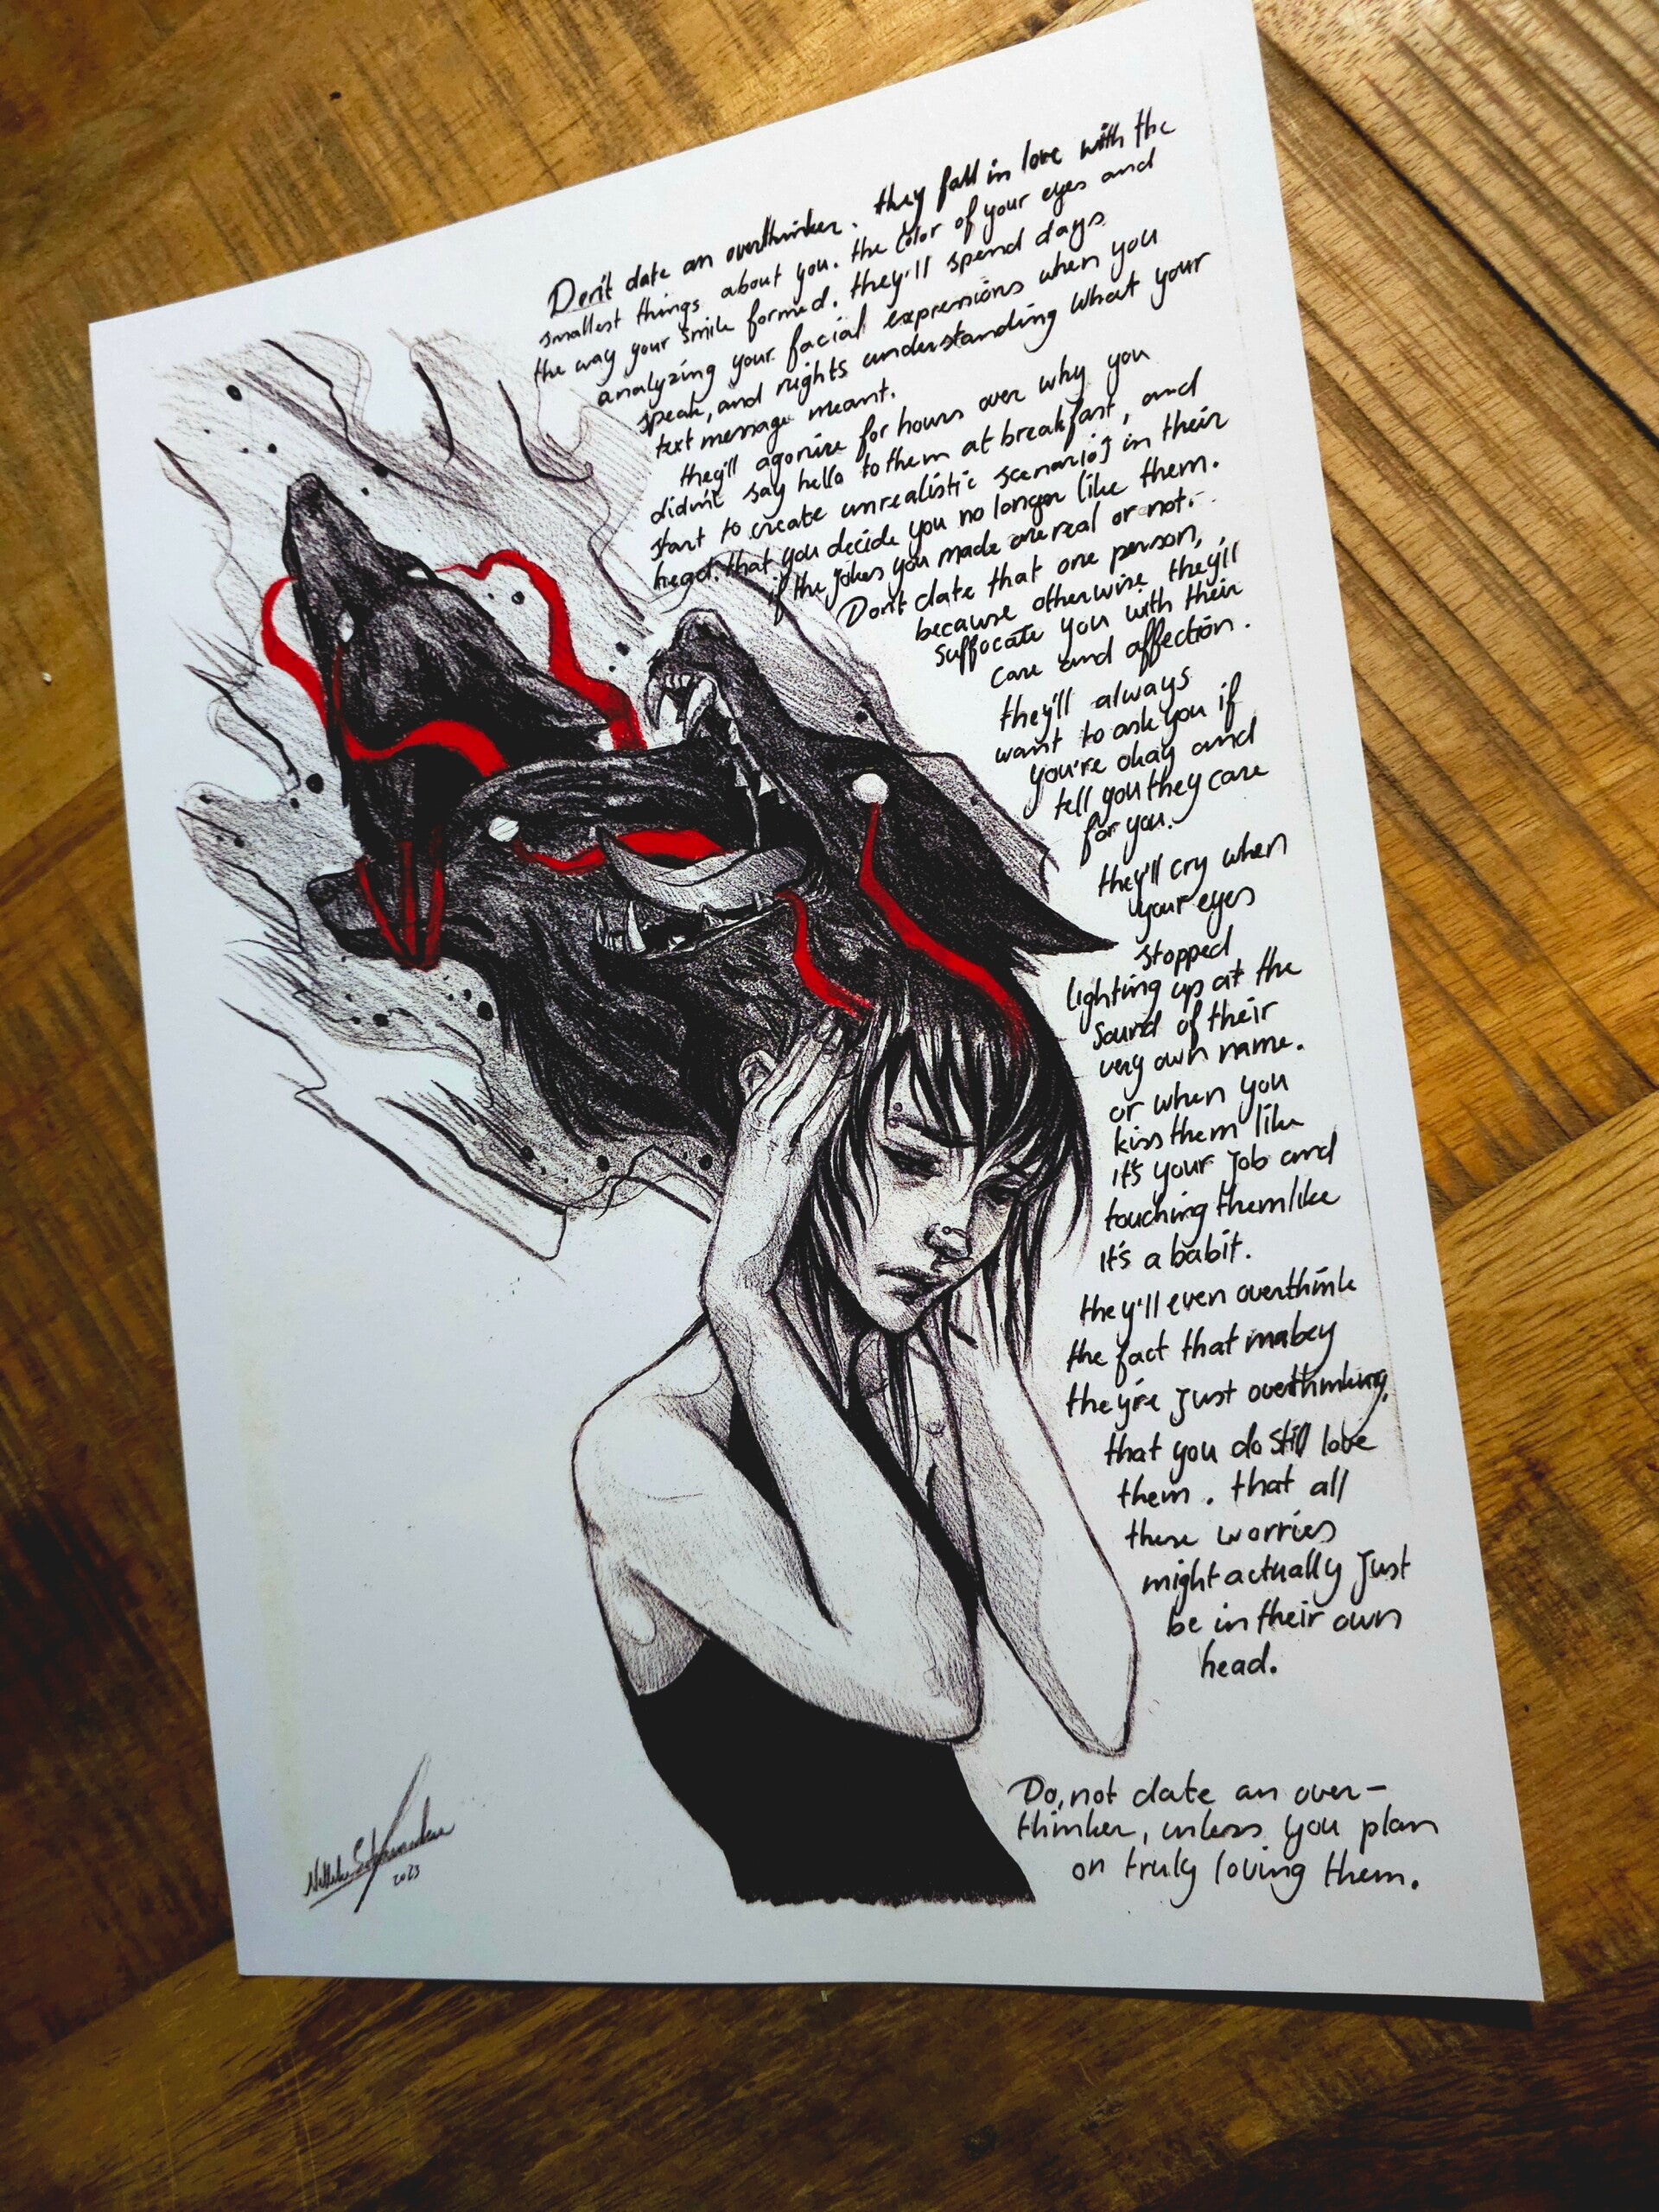 Don't date an overthinker. they fall in love with the
smallest things about you. the color of your eyes and
the way your smile formed. they'll spend days
analyzing your facial expressions when you
speak, and nights understanding what your
text message meant.
they'll agonize for hours over why you
didn't say hello to them at breakfast, and
start to create unrealistic scenarios in their
head. that you decide you no longer like them.
if the jokes you made are real or not.
Don't date that one person,
because otherwise they'll
suffocate you with their
care and affection.
they'll always
want to ask you if
you're okay and
tell you they care
for you.
they'll cry when
your eyes
stopped
lighting up at the
sound of their
very own name.
or when you
kiss them like
it's your job and
touching them like
it's a babit.
they'll even overthink
the fact that mabey
they're just overthinking,
that you do still love
them. that all
these worries
might actually just
be in their own
head.
Do, not date an over-
thinker, unless you plan
on truly loving them.
2023